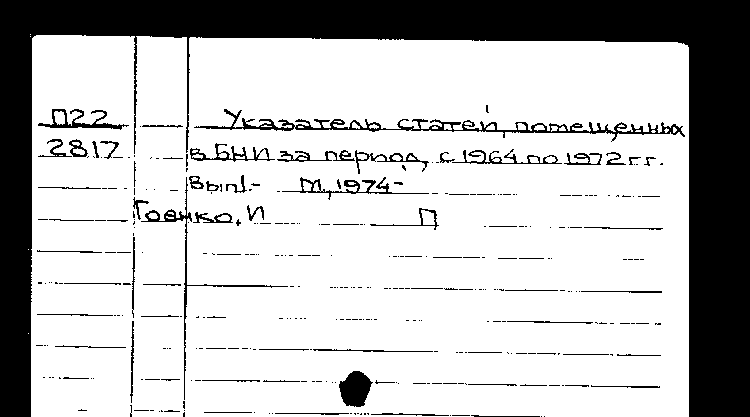 П22 Указатель статей, помещенных
2817 в БНИ за период, с 1964 по 1972 гг.
Вып1.- М., 1974-
Гоенко, И П